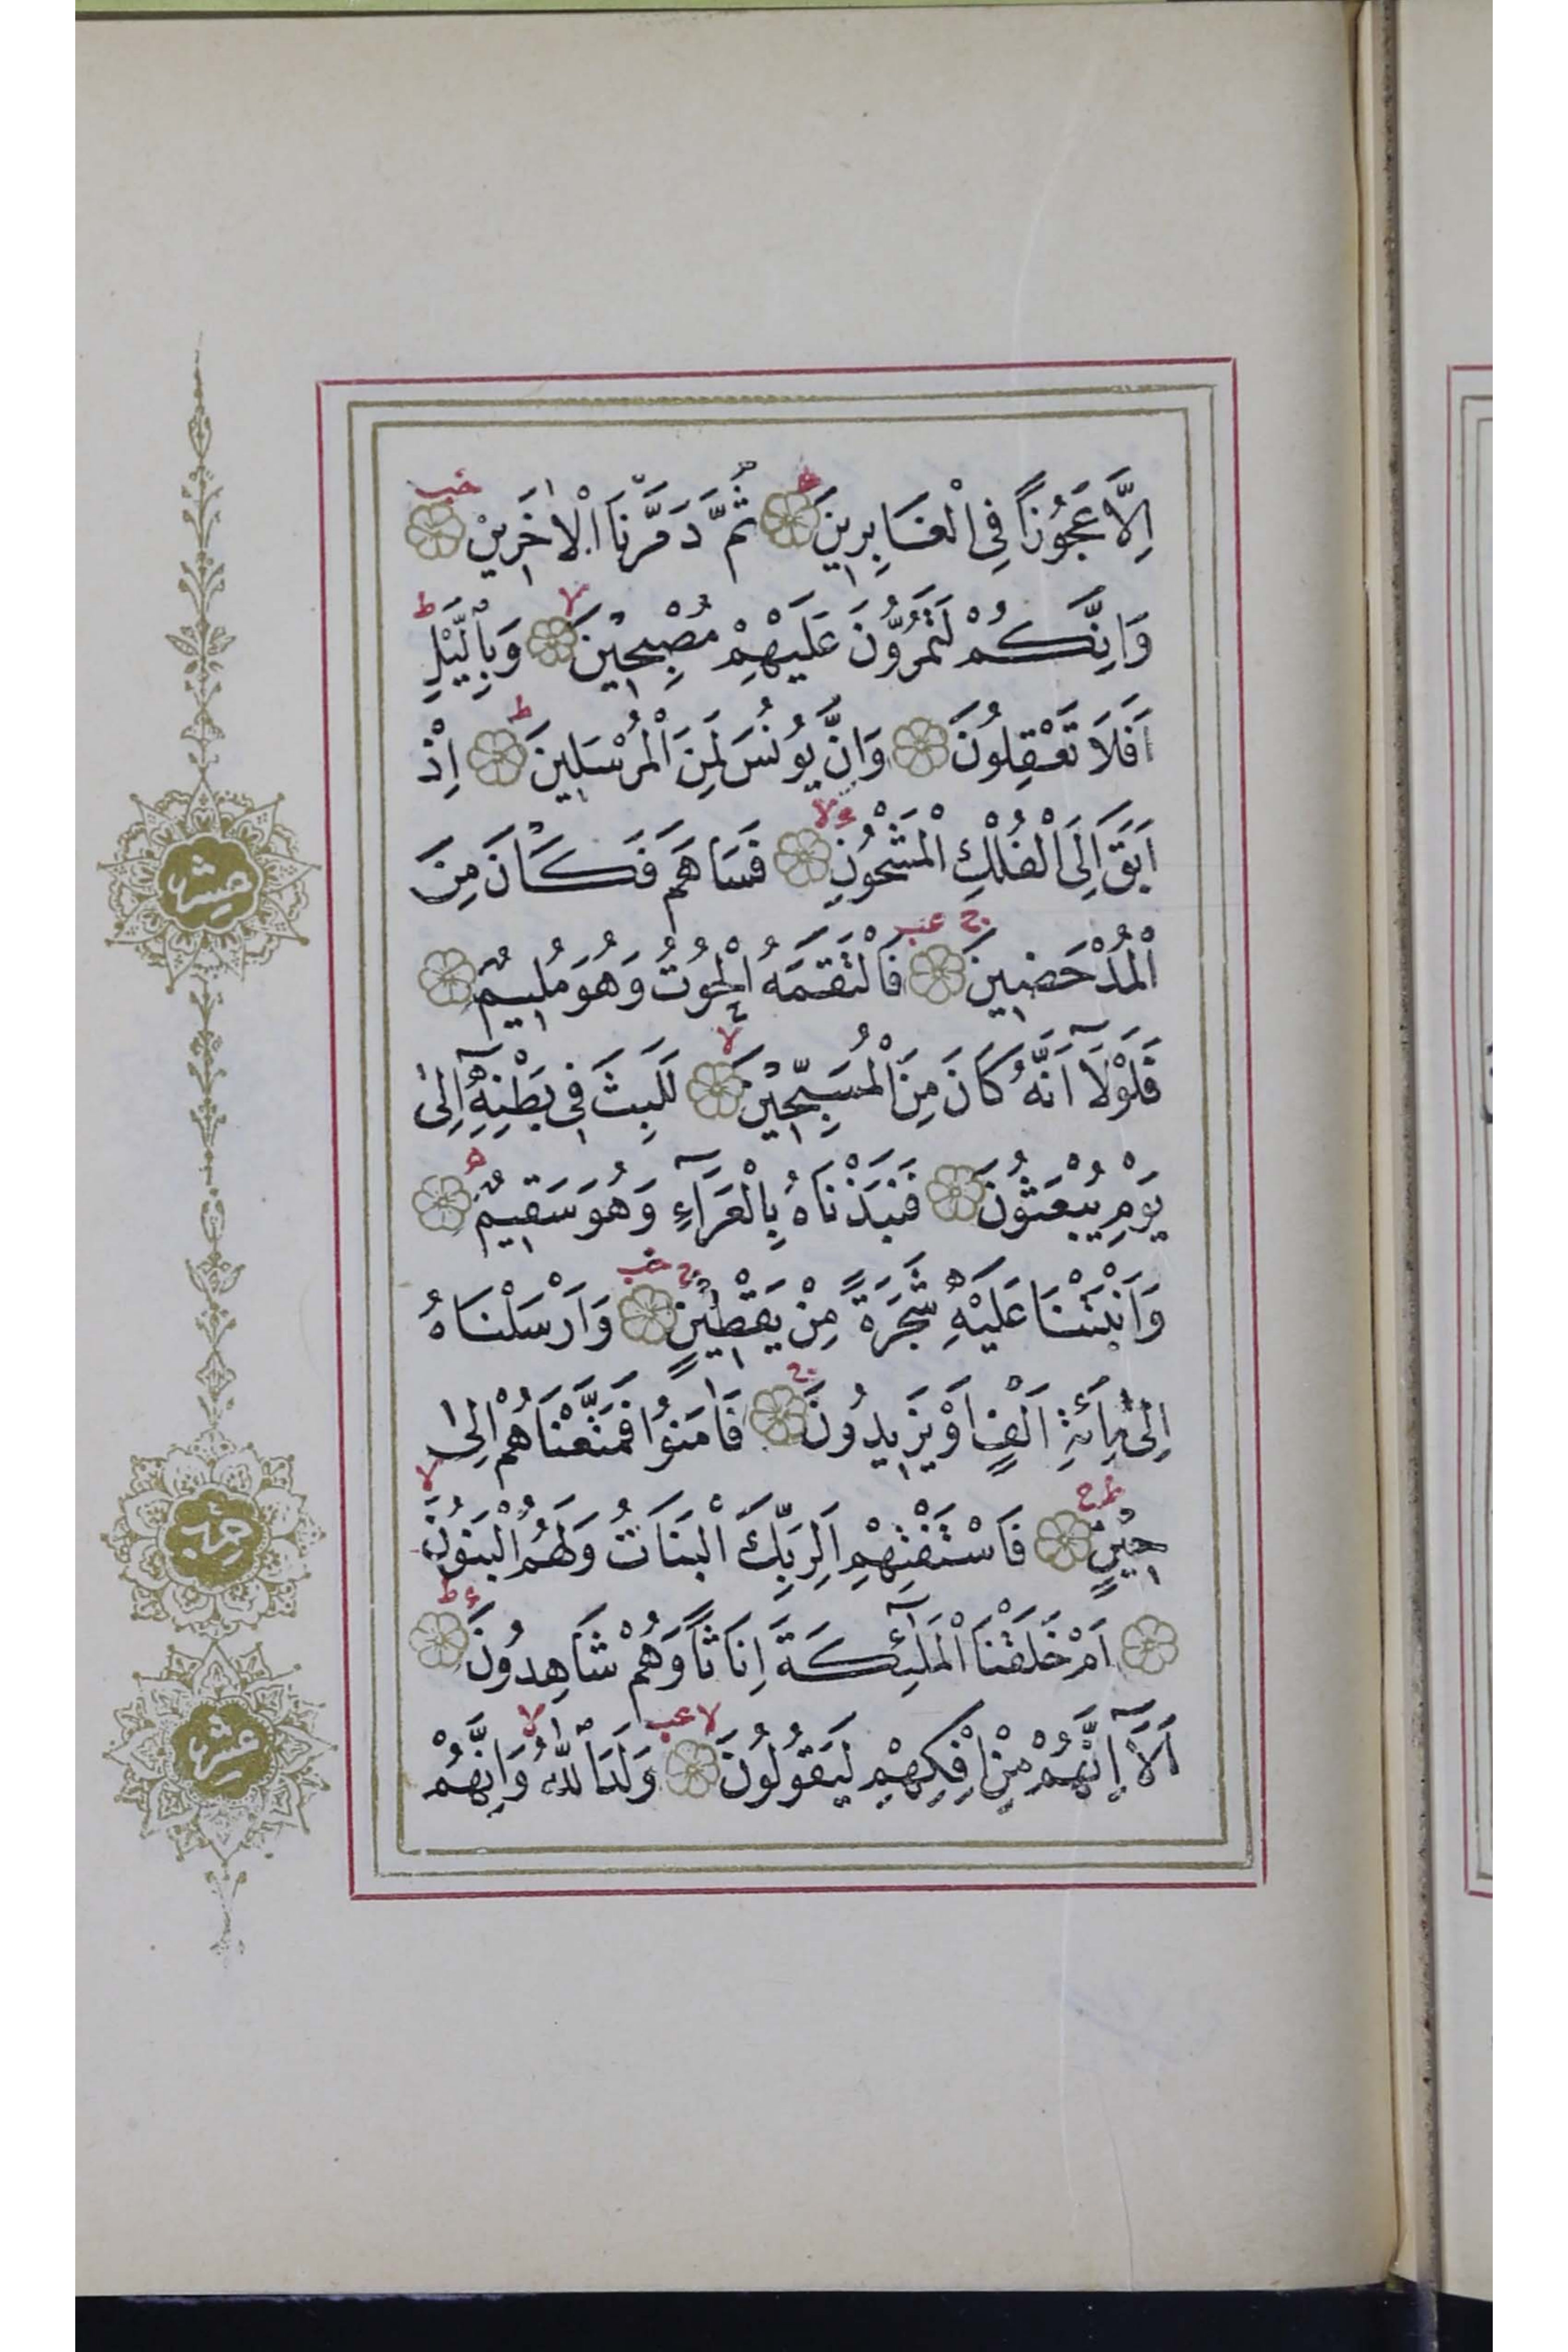 اِلَّا عَجُوزًا فِى الْغَابِرِينَ ثُمَّ دَمَّرْنَا الْاٰخَرِينَ
وَاِنَّكُمْ لَتَمُرُّونَ عَلَيْهِمْ مُصْبِحِينَ وَبِالَّيْلِ
اَفَلَا تَعْقِلُونَ وَاِنَّ يُونُسَ لَمِنَ الْمُرْسَلِينَ اِذْ
اَبَقَ اِلَى الْفُلْكِ الْمَشْحُونِ فَسَاهَمَ فَكَانَ مِنَ
الْمُدْحَضِينَ فَالْتَقَمَهُ الْحُوتُ وَهُوَ مُلِيمٌ
فَلَوْلَٓا اَنَّهُ كَانَ مِنَ الْمُسَبِّحِينَ لَلَبِثَ فِى بَطْنِهِٓ اِلٰى
يَوْمِ يُبْعَثُونَ فَنَبَذْنَاهُ بِالْعَرَٓاءِ وَهُوَ سَقِيمٌ
وَاَنْبَتْنَا عَلَيْهِ شَجَرَةً مِنْ يَقْطِينٍ وَاَرْسَلْنَاهُ
اِلٰى مِائَةِ اَلْفٍ اَوْ يَزِيدُونَ فَاٰمَنُوا فَمَتَّعْنَاهُمْ اِلٰى
حِينٍ فَاسْتَفْتِهِمْ اَلِرَبِّكَ الْبَنَاتُ وَلَهُمُ الْبَنُونَ
اَمْ خَلَقْنَا الْمَلٰٓئِكَةَ اِنَاثًا وَهُمْ شَاهِدُونَ
اَلَٓا اِنَّهُمْ مِنْ اِفْكِهِمْ لَيَقُولُونَ وَلَدَ اللّٰهُ وَاِنَّهُمْ
حزب
عشر